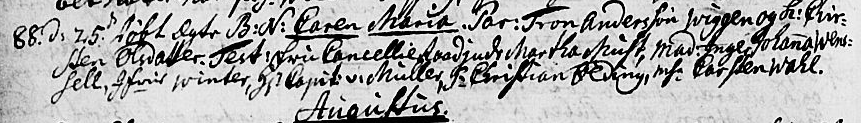 88. d: 25.d Døbt Ægte B: N: Caren Maria. Par: Tron Andersøn Wiggen og h: Kir-
sten Olsdatter. Test: Fru Cancellieraadinde Martha Must, Mad. Inger Johanna Wens-
sell, Jfr: Winter, Hr Capit: v. Müller, Sr Christian Elding, Mr Carsten Wahl.
Augustus.